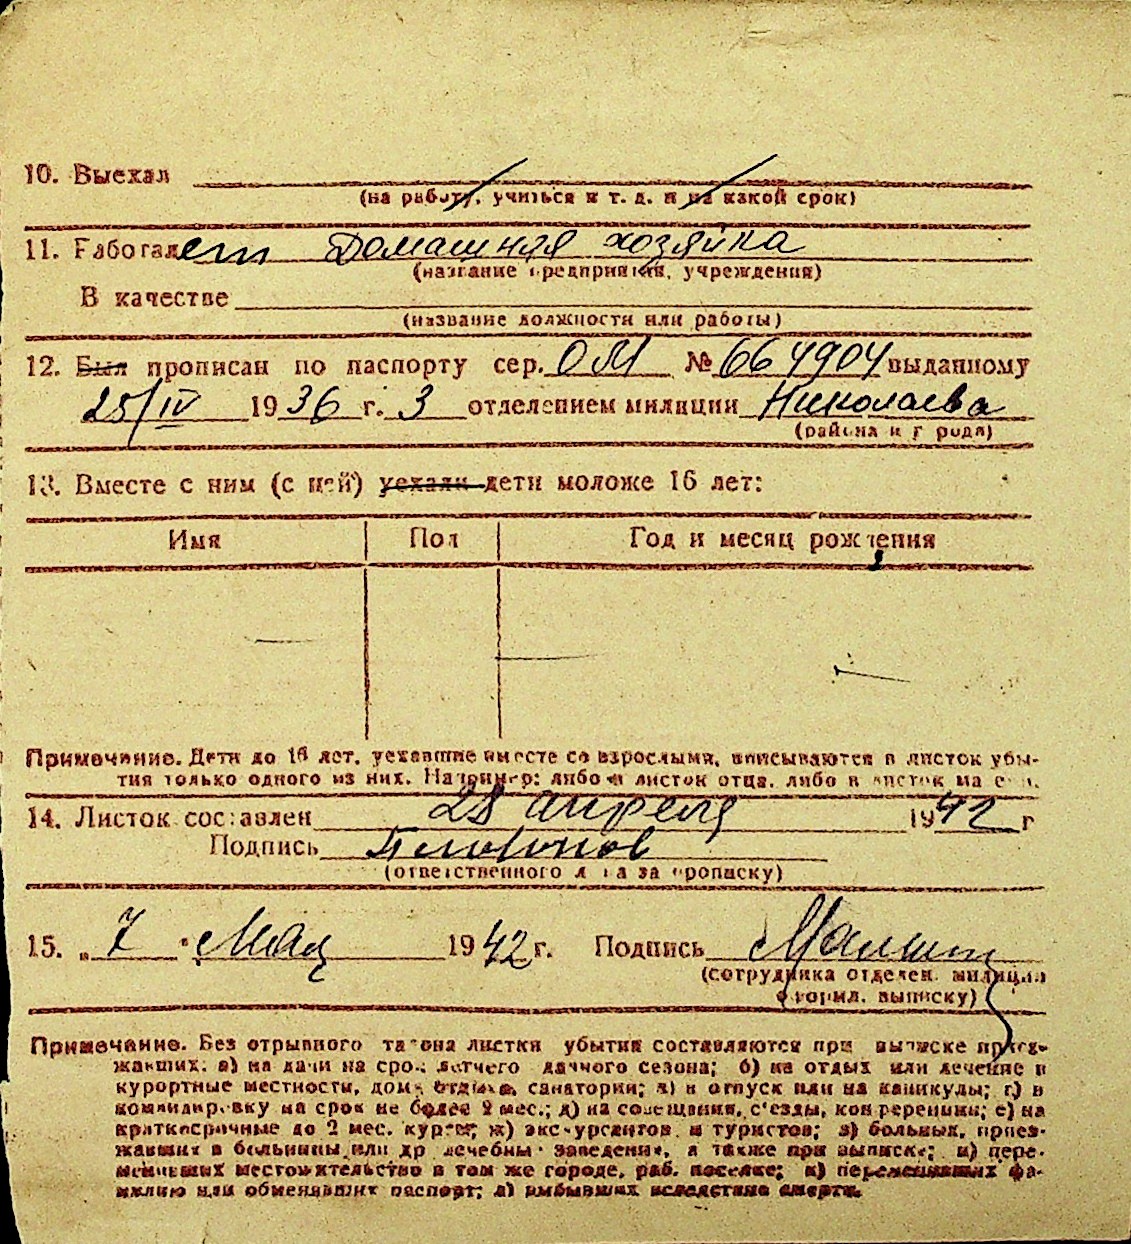 10. Выехал
(на работу, учиться и т. д. и на какой срок)
11. Работает Домашная хозяйка
(название предприятия, учреждения)
В качестве
(название должности или работы)
12. Был прописан по паспорту сер. ОМ № 664904 выданному
25/IV 1936 г. 3 отделением милиции Николаева
(района и города)
13. Вместе с ним (с ней) уехали дети моложе 16 лет:
Имя Пол Год и месяц рождения
Примечание. Дети до 16 лет, уехавшие вместе со взрослыми, вписываются в листок убы-
тия только одного из них. Например: либо в листок отца, либо в листок матери.
14. Листок составлен 28 апреля 1942 г
Подпись
(ответственного лица за прописку)
15. „7" Мая 1942 г. Подпись
(сотрудника отделен. милиции
оформил. выписку)
Примечание. Без отрывного талона листки убытия составляются при выписке приез-
жавших: а) на дачи на срок летнего дачного сезона; б) на отдых или лечение в
курортные местности, дома отдыха, санатории; в) в отпуск или на каникулы; г) в
командировку на срок не более 2 мес.; д) на совещания, с'езды, конференции; е) на
краткосрочные до 2 мес. курсы; ж) экскурсантов и туристов; з) больных, приез-
жавших в больницы или др лечебны заведения, а также при выписке; и) пере-
менивших местожительство в том же городе, раб. поселке; к) переменивших фа-
милию или обменявших паспорт; л) выбывших вследствие смерти.